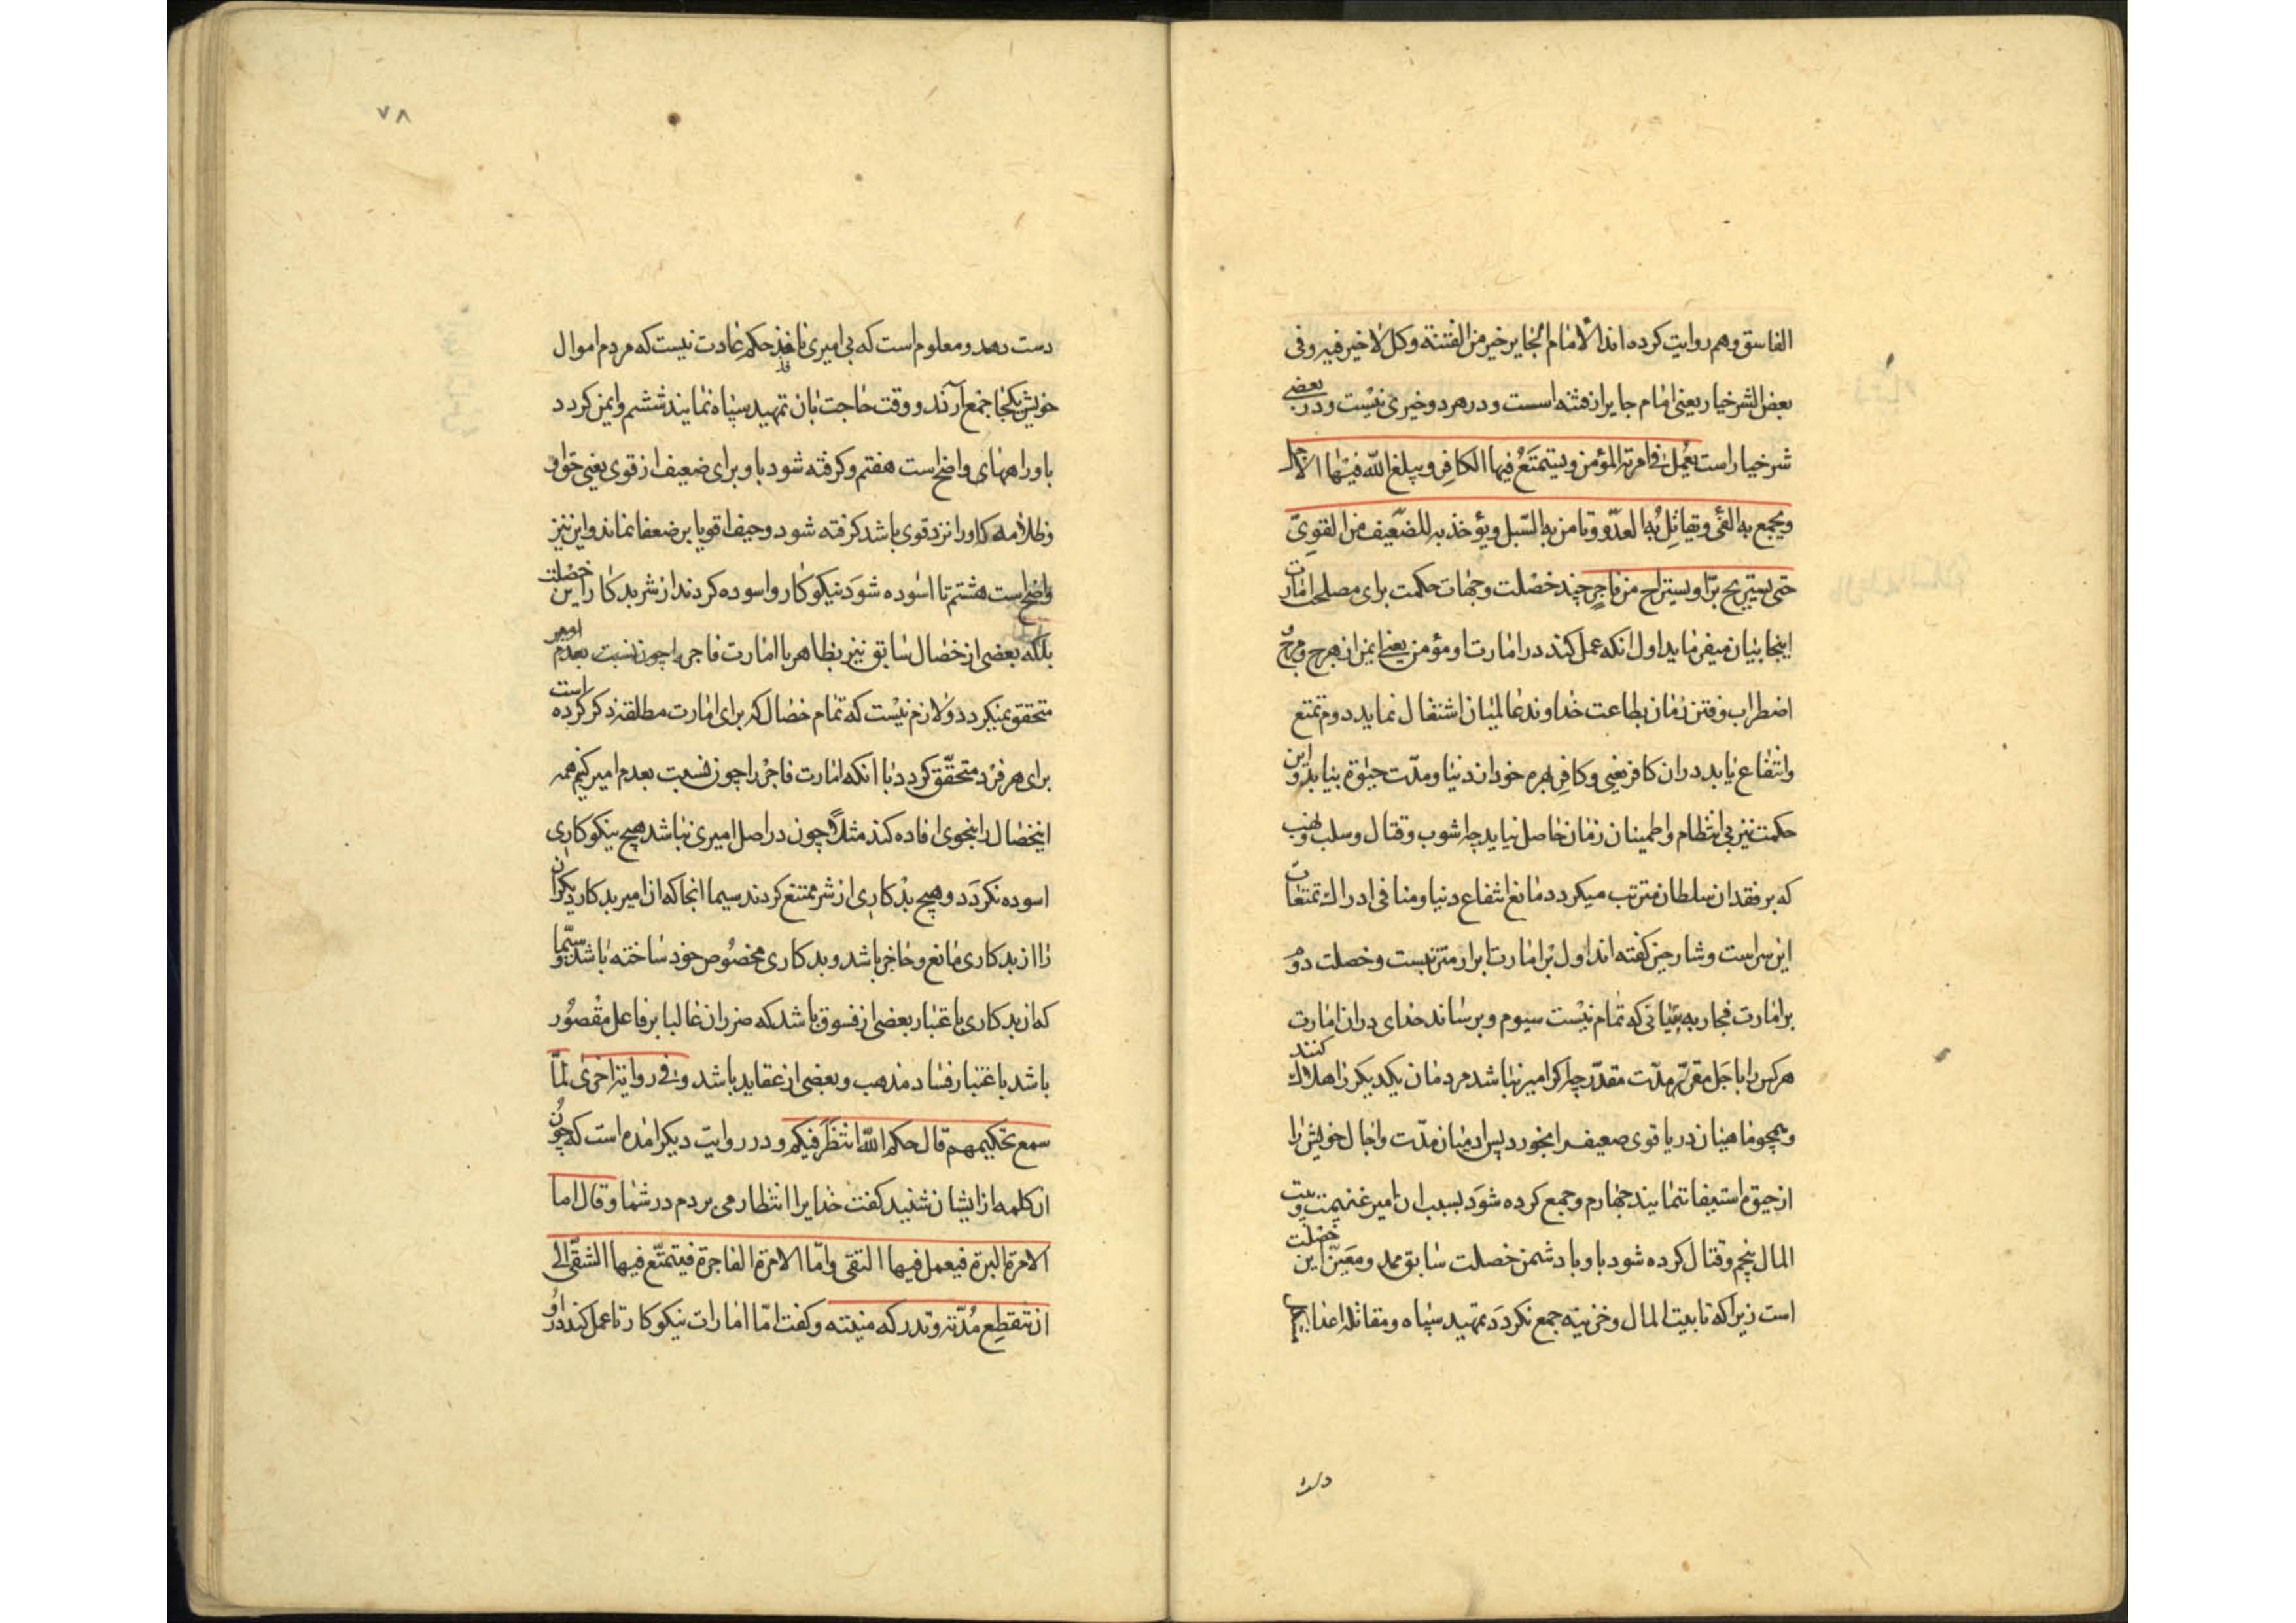 الفاسق وهم روایت کرده اند الامام الجایر خیر من الفتنة وکل لا خیر فیه وفی
بعض الشر خیار یعنی امام جایر از فتنه است و در هر دو خیری نیست و در بعضی
شر خیار است یعمل فی امرته المؤمن ویستمتع فیها الکافر ویبلغ الله فیها الاجل
ویجمع به الفیٔ ویقاتل به العدو وتأمن به السبل ویؤخذ به للضعیف من القوی
حتی یستریح برّ ویستراح من فاجر چند خصلت وجهات حکمت برای مصلحت امارت
اینجا بیان میفرماید اول انکه عمل کند در امارت او مؤمن یعنی ایمن از هرج ومرج
اضطراب وفتن زمان بطاعت خداوند عالمیان اشتغال نماید دوم تمتع
وانتفاع یابد در ان کافر یعنی وکافر بهره خود از دنیا ومدّت حیوة بیابد واین
حکمت نیز بی انتظام واطمینان زمان حاصل نیاید چه اشوب وقتال وسلب ونهب
که بر فقدان سلطان مترتب میکردد مانع انتفاع دنیا ومنافی ادراک تمتعات
این سراست وشارحین کفته اند اول بر امارت ابرار متزنبست وخصلت دوم
بر امارت فجار به بیانی که تمام نیست سیوم وبرساند خدای در ان امارت
هر کس را باجل مقرّر ومدّت مقدّر چه اکر امیر نباشد مردمان یکدیکر را هلاک کنند
وهمچو ماهیان دریا قوی ضعیف را بخورد پس ادمیان مدّت واجال خویش را
از حیوة استیفا ننمایند چهارم وجمع کرده شود بسبب ان امیر غنیمت وبیت
المال پنجم وقتال کرده شود باو با دشمن خصلت سابق ممد ومعین این خصلت
است زیرا که تا بیت المال وخزینه جمع نکردد تمهید سپاه ومقاتله اعدا
دست
۷۸
دست دهد ومعلوم است که بی امیری نافذ حکم عادت نیست که مردم اموال
خویش یکجا جمع آرند ووقت حاجت بان تمهید سپاه نمایند ششم وایمن کردد
باو راههای واضح است هفتم وکرفته شود باو برای ضعیف از قوی یعنی حق او
وظلامه که او را نزد قوی باشد کرفته شود وحیف اقویا بر ضعفا نماند واین نیز
واضح است هشتم تا اسوده شود نیکوکار واسوده کردند از شر بدکار این خصلت
بلکه بعضی از خصال سابق نیز بظاهر با امارت فاجر چون نسبت بعدم امیر
متحقق نمیکردد ولازم نیست که تمام خصال که برای امارت مطلقه ذکر کرده است
برای هر فرد متحقّق کردد با انکه امارت فاجر را چون نسبت بعدم امیر کنیم همه
اینخصال را بنحوی افاده کند مثلاً چون در اصل امیری نباشد هیچ نیکوکاری
اسوده نکردد وهیچ بدکاری از شر ممتنع کردند سیما انجا که ان امیر بدکار دیکران
را از بدکاری مانع وحاجز باشد وبدکاری مخصوص خود ساخته باشد وسیّما
که ان بدکاری باعتبار بعضی از فسوق باشد که ضرر ان غالبا بر فاعل مقصور
باشد باعتبار فساد مذهب وبعضی از عقاید باشد وفی روایة اخری لمّا
سمع تحکیمهم قال حکم الله انتظر فیکم ودر روایت دیکر امده است که چون
ان کلمه از ایشان شنید کفت خدایرا انتظار می بردم در شما وقال اما
الامرة البرة فیعمل فیها التقی وامّا الامرة الفاجرة فیتمتّع فیها الشقی الی
ان تنقطع مدّته وتدرکه منیته وکفت امّا امارات نیکوکار تا عمل کند در او